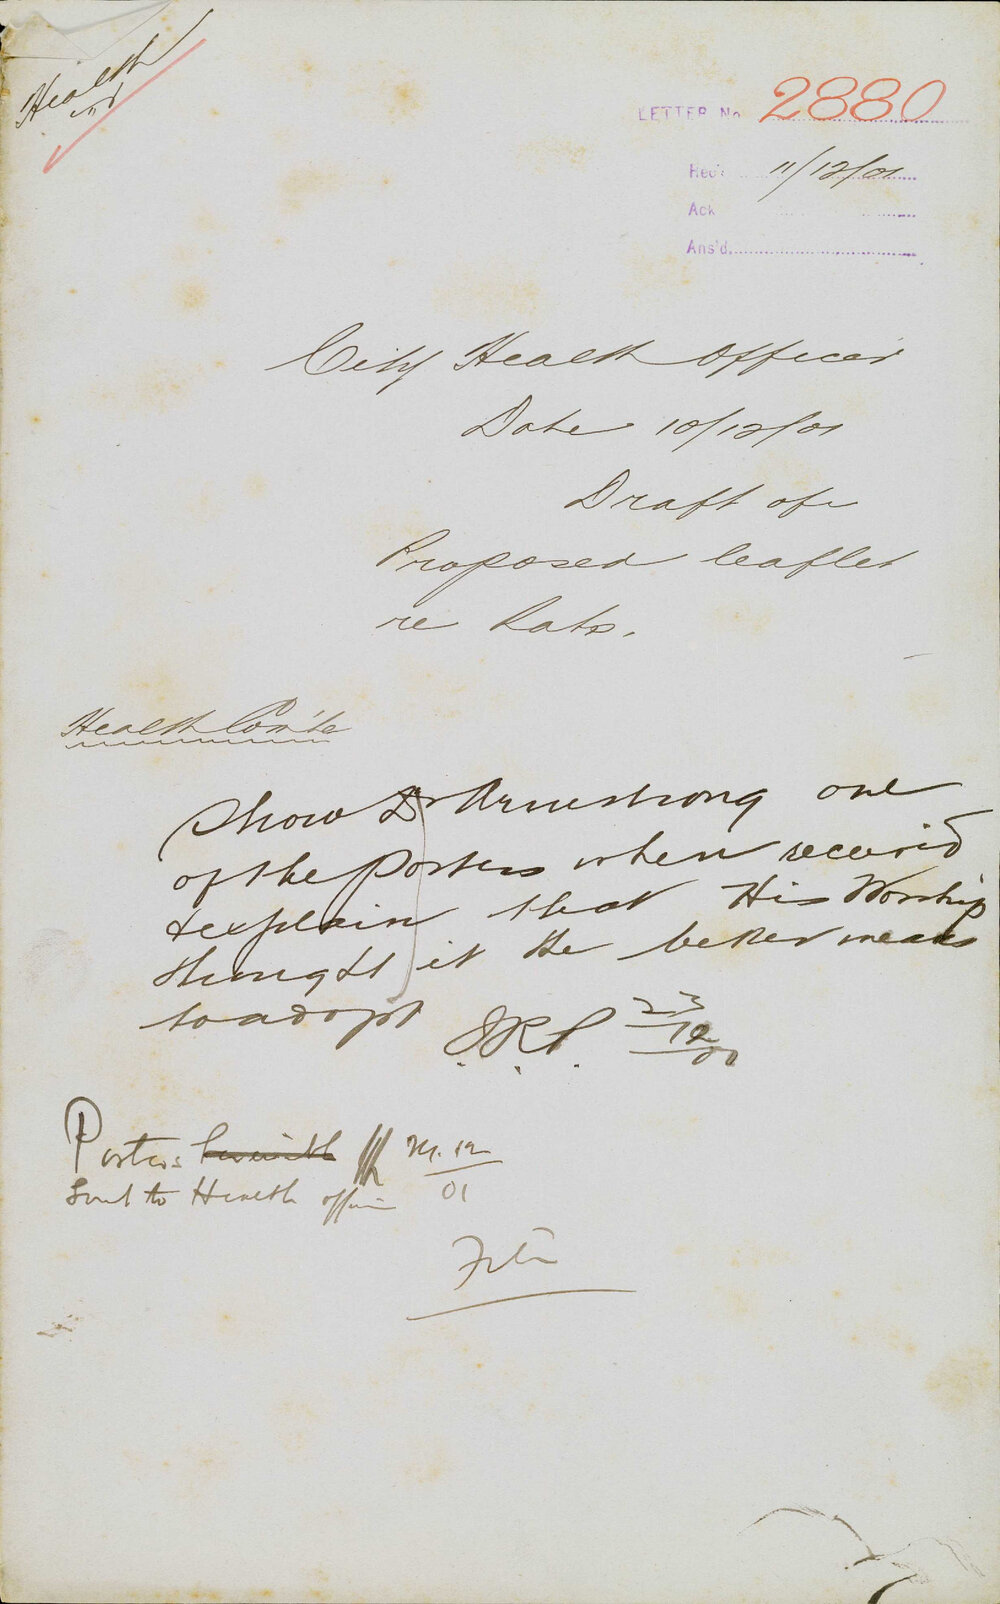 Health
LETTER No 2880
Rec'd 11/12/01
Ack
Ans'd
City Health Officer
Date 10/12/01
Draft of
Proposed leaflet
re Rats.
Health Com'te
Show Dr Armstrong one
of the posters when received
& explain that His Worship
thought it the better means
to adopt
23/12
Posters
Sent to Health officer
12/01
File